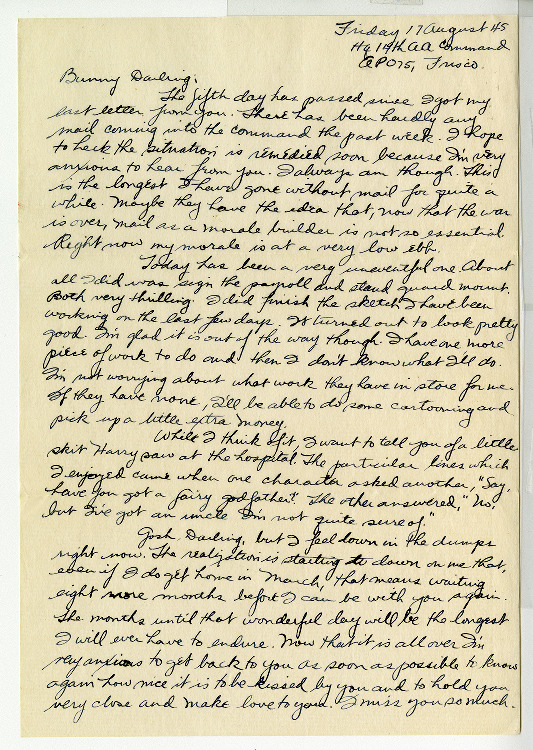 Friday 17 August 45
Hq 14th AA Command
APO 75, Frisco.
Bunny Darling;
The fifth day has passed since I got my
last letter from you. There has been hardly any
mail coming into the command the past week. I hope
to heck the situation is remedied soon because I'm very
anxious to hear from you. I always am though. This
is the longest I have gone without mail for quite a
while. Maybe they have the idea that, now that the war
is over, mail as a morale builder is not so essential.
Right now my morale is at a very low ebb.
Today has been a very uneventful one. About
all I did was sign the payroll and stand guard mount.
Both very thrilling. I did finish the sketch I have been
working on the last few days. It turned out to look pretty
good. I'm glad it is out of the way though. I have one more
piece of work to do and then I don't know what I'll do.
I'm not worrying about what work they have in store for me.
If they have none, I'll be able to do some cartooning and
pick up a little extra money.
While I think of it, I want to tell you of a little
skit Harry saw at the hospital. The particular lines which
I enjoyed came when one character asked another, "Say,
have you got a fairy godfather?" The other answered, "No,
but I've got an uncle I'm not quite sure of."
Gosh, Darling, but I feel down in the dumps
right now. The realization is starting to dawn on me that,
even if I do get home in March, that means waiting
eight more months before I can be with you again.
The months until that wonderful day will be the longest
I will ever have to endure. Now that it is all over I'm
very anxious to get back to you as soon as possible to know
again how nice it is to be kissed by you and to hold you
very close and make love to you. I miss you so much.